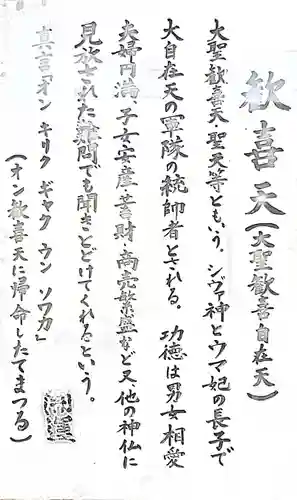 歓喜天(大聖歓喜自在天)
大聖歓喜天、聖天等ともいう。シヴァ神とウマ妃の長子で
大自在天の軍隊の統帥者とされる。功徳は男女相愛
夫婦円満、子女安産、蓄財、商売繁盛など又他の神仏に
見放された難問でも聞きとどけてくれるという。
真言「オン キリク ギャク ウン ソワカ」
(オン歓喜天に帰命したてまつる)